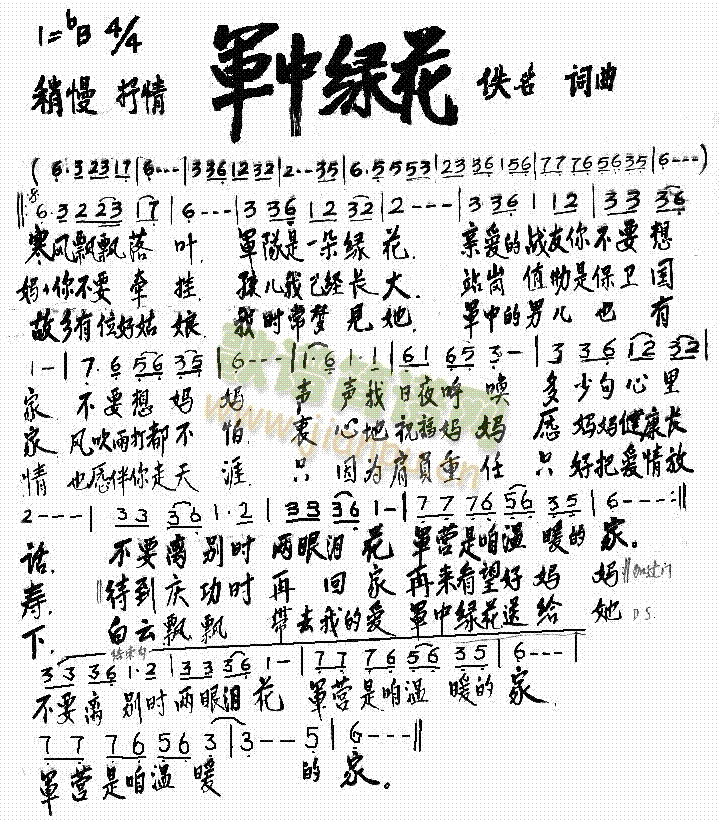 1=♭B 4/4
軍中绿花
佚名 词曲
稍慢 抒情
(6·3 2 3 1 7 | 6--- | 3 3 6 1 2 3 2 | 2--3 5 | 6·5 5 5 3 | 2 3 3 6 1 5 6 | 7 7 7 6 5 6 3 5 | 6---)
‖: 6·3 2 2 3 1 7 | 6--- | 3 3 6 1 2 3 2 | 2--- | 3 3 6 1 1 2 | 3 3 3 6
寒风飘飘落 叶. 軍隊是一朵绿 花. 亲爱的战友你不要想
妈妈你不要 牵 挂. 孩儿我已经长 大. 站岗 值勤是保卫 国
故乡有位好姑 娘. 我时常梦 見 她. 軍中的男儿 也 有
1-- | 7·6 5 6 3 5 | 6--- | 1·6 1·1 | 6 1 6 5 3- | 3 3 6 1 2 3 2 |
家. 不要想 妈 妈 声 声我 日夜呼 唤 多 少句心里
家. 风吹雨打都不 怕 衷 心地 祝福妈 妈 愿 妈妈健康长
情 也愿伴你走天 涯. 只 因为肩負重 任 只 好把爱情放
2--- | 3 3 3 6 1·2 | 3 3 3 6 1- | 7 7 7 6 5 6 3 5 | 6--- :‖
话. 不要离 别时 两眼泪 花 軍营是咱温 暖的 家.
寿. ‖待到庆 功时 再 回 家 再来看望好 妈 妈‖
下. 白云飘 飘 带去我的爱 軍中绿花送 给 她 D.S.
结束句
3 3 3 6 1·2 | 3 3 3 6 1- | 7 7 7 6 5 6 3 5 | 6--- |
不要离 别时两眼泪 花 軍营是咱温 暖的 家.
7 7 7 6 5 6 3 | 3-- 5 | 6---‖
軍营是咱温 暖 的 家.